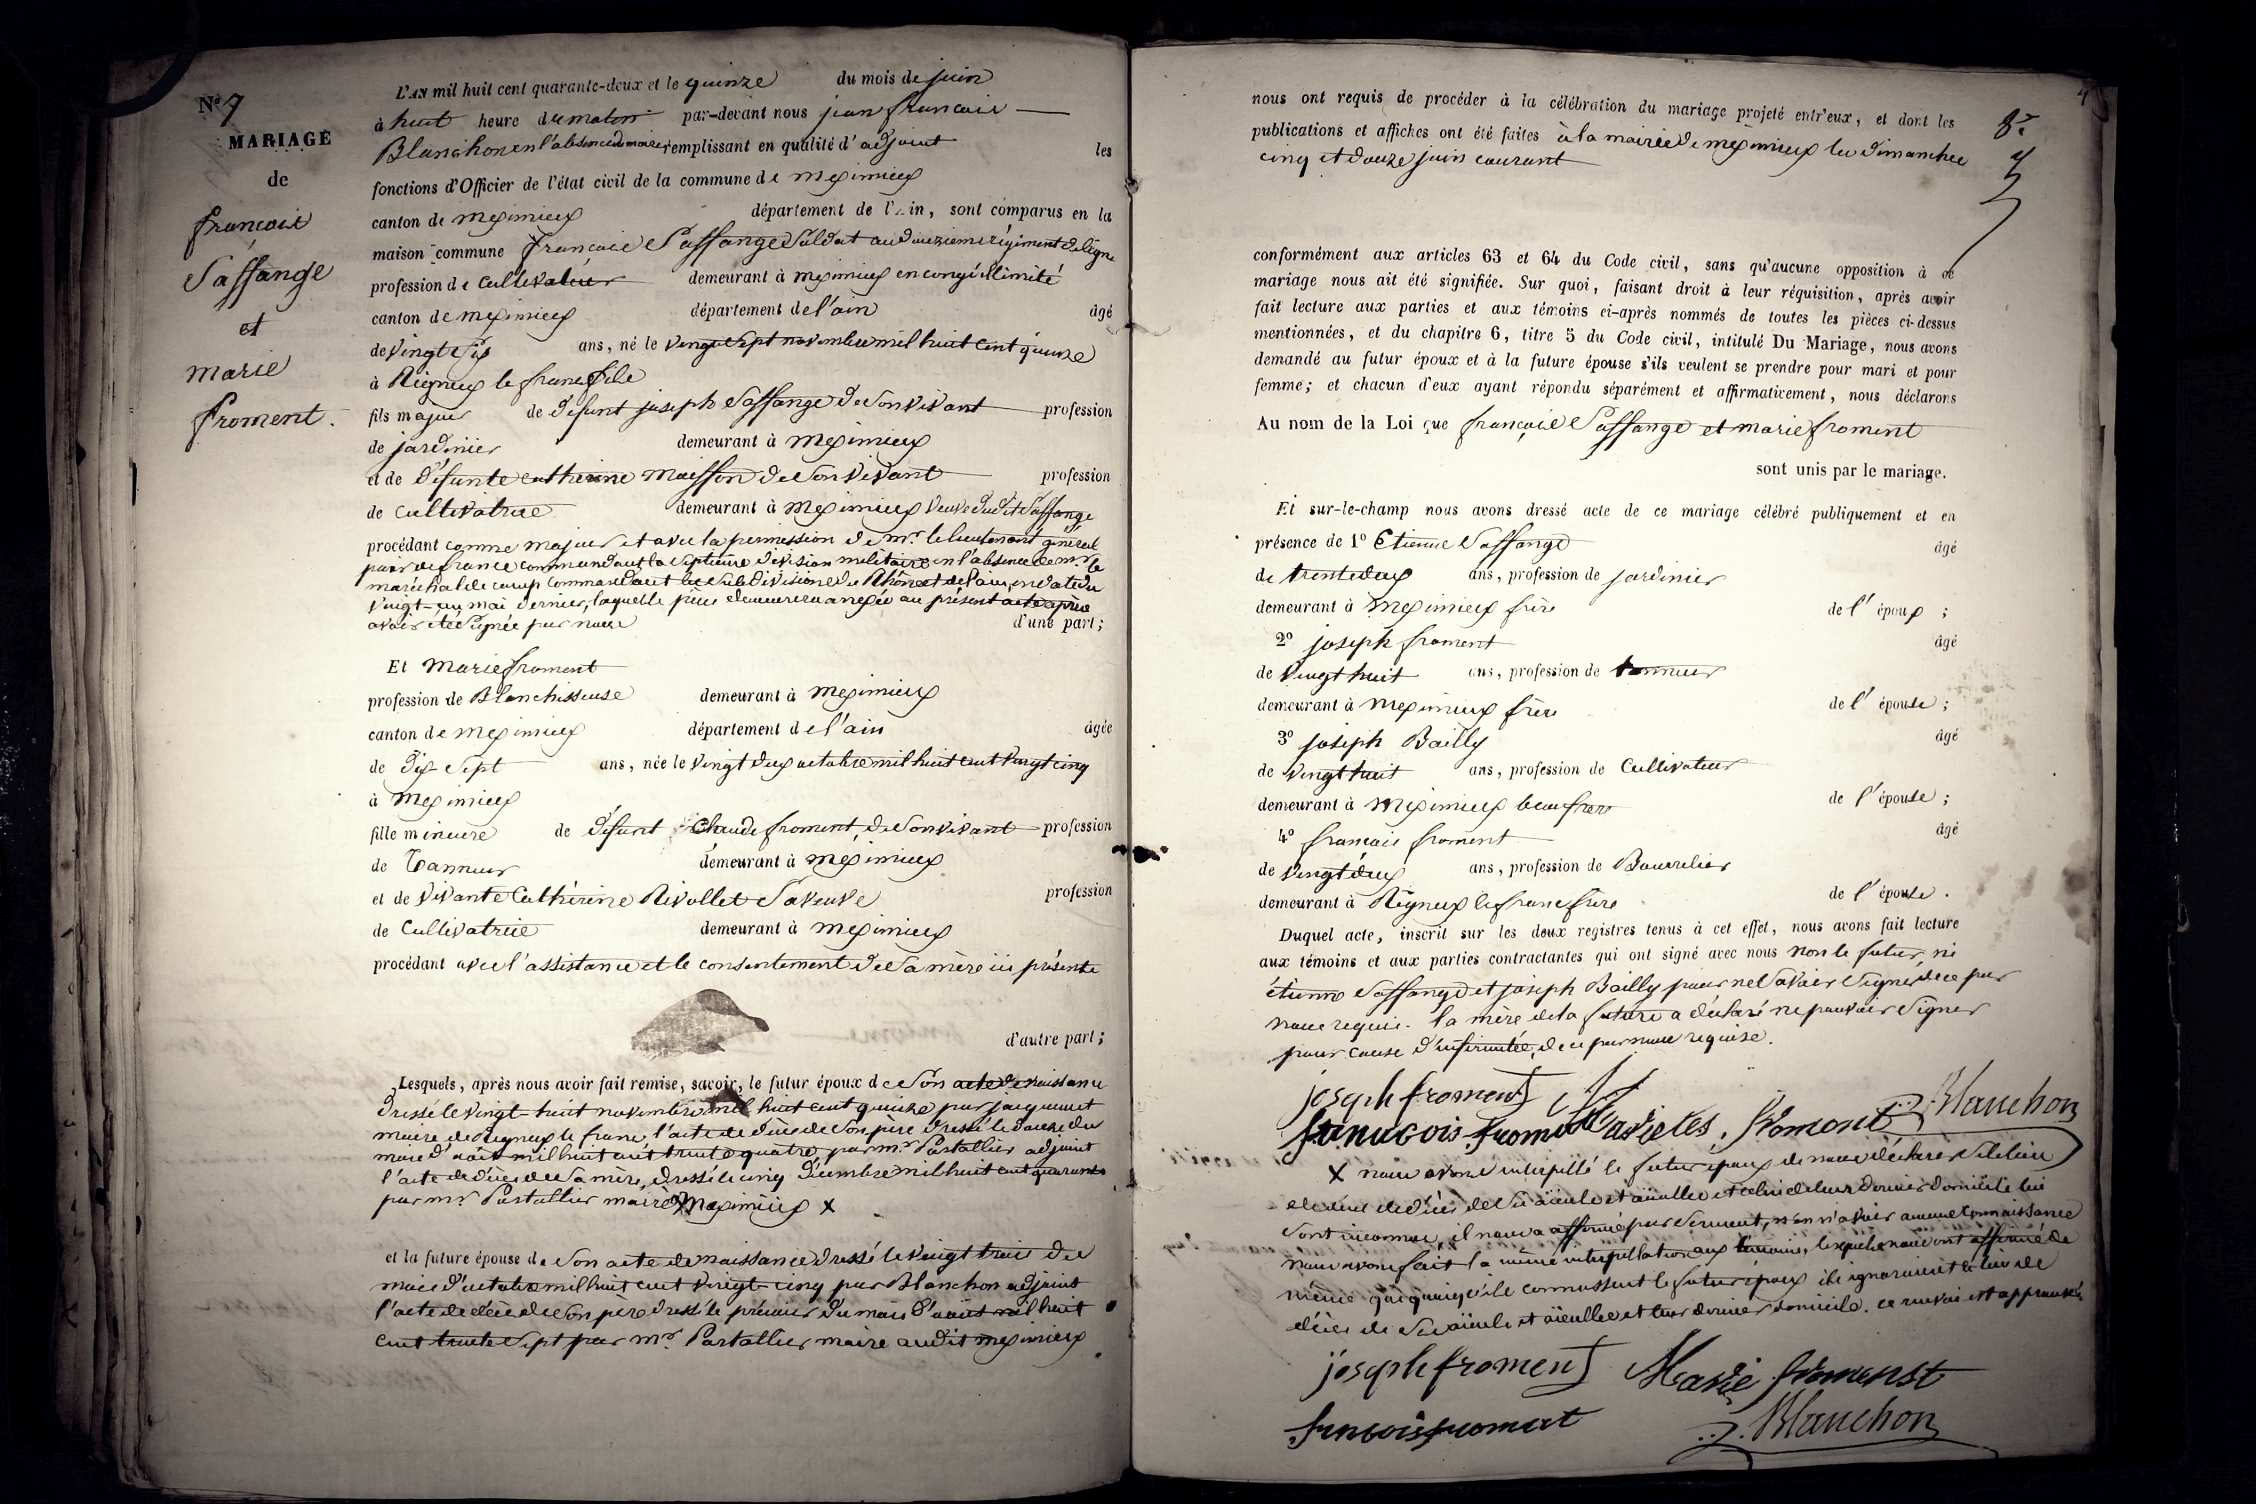 N° 7
MARIAGE
de
francois
Saffange
et
marie
froment.
L'AN mil huit cent quarante-deux et le quinze du mois de juin
à huit heure du matin par-devant nous jean francois
Blanchon en l'absence du maire remplissant en qualité d'adjoint les
fonctions d'Officier de l'état civil de la commune de meximieux
canton de meximieux département de l'Ain, sont comparus en la
maison commune francois Saffange Soldat au douzieme régiment de ligne
profession de cultivateur demeurant à meximieux en congé illimité
canton de meximieux département de l'ain âgé
de vingt six ans, né le vingt sept novembre mil huit cent quinze
à Rigneux le franc file
fils majeur de défunt joseph Saffange de Son vivant profession
de jardinier demeurant à meximieux
et de défunte catherine maisson de Son vivant profession
de cultivatrice demeurant à meximieux veuve dudit Saffange
procédant comme majeur et avec la permission de mr. le lieutenant général
pair de france commandant la Septieme division militaire en l'absence de mr le
maréchal de camp commandant les Subdivisions du Rhône et de l'ain, en date du
vingt-un mai dernier, laquelle pièce demeurera anexée au présent acte après
avoir été Signée par nous d'une part;
Et marie froment
profession de Blanchisseuse demeurant à meximieux
canton de meximieux département de l'ain âgée
de dix-Sept ans, née le vingt deux octobre mil huit cent vingt cinq
à meximieux
fille mineure de défunt Claude froment, de Son vivant profession
de Tanneur demeurant à meximieux
et de vivante Cathérine Rivollet Sa veuve profession
de Cultivatrice demeurant à meximieux
procédant avec l'assistance et le consentement de Sa mère ici présente
d'autre part;
Lesquels, après nous avoir fait remise, savoir, le futur époux de Son acte de naissance
dressé le vingt-huit novembre mil huit cent quinze par jacquemet
maire de Rigneux le franc, l'acte de décès de Son père dressé le douze du
mois d'août mil huit cent trente quatre par mr. Portallier adjoint
l'acte de décès de Sa mère, dressé le cinq décembre mil huit cent quarante
par mr. Portallier maire à Meximieux X
et la future épouse de Son acte de naissance dressé le vingt trois du
mois d'octobre mil huit cent vingt-cinq par Blanchon adjoint
l'acte de décès de Son père dressé le premier du mois d'août mil huit
cent trente Sept par mr. Portallier maire audit meximieux
nous ont requis de procéder à la célébration du mariage projeté entr'eux, et dont les
publications et affiches ont été faites à la mairie de meximieux les dimanches
cinq et douze juin courant
conformément aux articles 63 et 64 du Code civil, sans qu'aucune opposition à ce
mariage nous ait été signifiée. Sur quoi, faisant droit à leur réquisition, après avoir
fait lecture aux parties et aux témoins ci-après nommés de toutes les pièces ci-dessus
mentionnées, et du chapitre 6, titre 5 du Code civil, intitulé Du Mariage, nous avons
demandé au futur époux et à la future épouse s'ils veulent se prendre pour mari et pour
femme; et chacun d'eux ayant répondu séparément et affirmativement, nous déclarons
Au nom de la Loi que françois Saffange et marie froment
sont unis par le mariage.
Et sur-le-champ nous avons dressé acte de ce mariage célébré publiquement et en
présence de 1° Etienne Saffange âgé
de trente deux ans, profession de jardinier
demeurant à Meximieux frère de l'époux;
2° joseph froment âgé
de vingt huit ans, profession de tanneur
demeurant à Meximieux frère de l'épouse;
3° joseph Bailly âgé
de vingt huit ans, profession de Cultivateur
demeurant à Meximieux beau frère de l'épouse;
4° francois froment âgé
de vingt deux ans, profession de Bourrelier
demeurant à Rigneux le franc frère de l'épouse.
Duquel acte, inscrit sur les deux registres tenus à cet effet, nous avons fait lecture
aux témoins et aux parties contractantes qui ont signé avec nous non le futur, ni
étienne Saffange et joseph Bailly pour ne Savoir Signer de ce par
nous requis. la mère de la future a déclaré ne pouvoir Signer
pour cause d'infirmitée, de ce par nous requise.
joseph froment Blanchon
francois froment Marie froment
X nous avons interpellé le futur époux de nous déclarer Si le lieu
de décès de Ses aïeuls et aïeulles et celui de leur dernier domicile lui
Sont inconnus, il nous a affirmé par Serment, n'en n'avoir aucune connaissance
nous avons fait la même interpellation aux témoins, lesquels nous ont affirmé de
même que quoiqu'ils connussent le futur époux ils ignoraient le lieu de
décès de Ses aïeuls et aïeulles et leur dernier domicile. ce renvoi est approuvé
joseph froment Marie froment
francois froment Blanchon